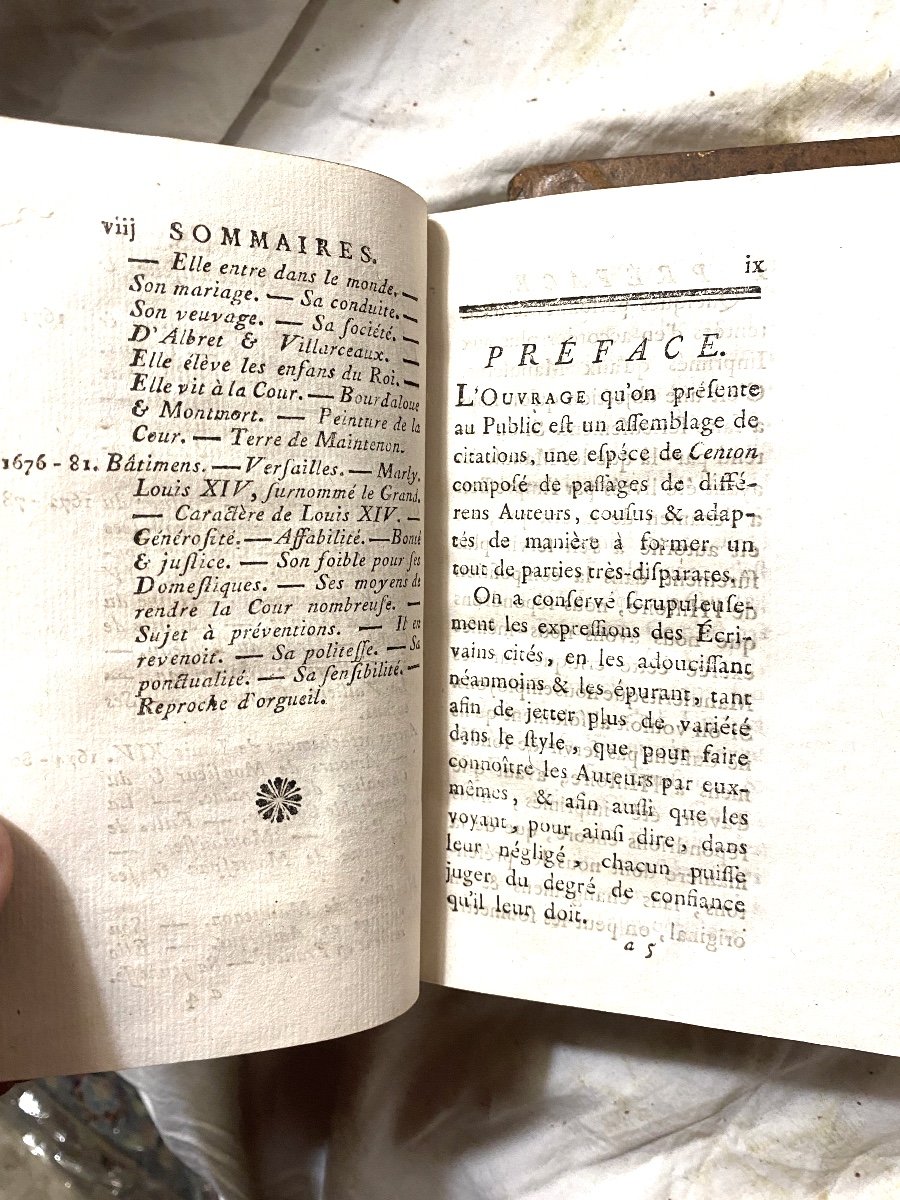 viij SOMMAIRES.
— Elle entre dans le monde. —
Son mariage. — Sa conduite. —
Son veuvage. — Sa ſociété. —
D'Albret & Villarceaux. —
Elle élève les enfans du Roi. —
Elle vit à la Cour. — Bourdaloue
& Montmort. — Peinture de la
Cour. — Terre de Maintenon.
1676 - 81. Bâtimens. — Verſailles. — Marly.
Louis XIV, ſurnommé le Grand.
— Caractère de Louis XIV. —
Généroſité. — Affabilité. — Bonté
& juſtice. — Son foible pour ſes
Domeſtiques. — Ses moyens de
rendre la Cour nombreuſe. —
Sujet à préventions. — Il en
revenoit. — Sa politeſſe. — Sa
ponctualité. — Sa ſenſibilité. —
Reproche d'orgueil.
ix
PRÉFACE.
L'OUVRAGE qu'on préſente
au Public eſt un aſſemblage de
citations, une eſpéce de Centon
compoſé de paſſages de diffé-
rens Auteurs, couſus & adap-
tés de manière à former un
tout de parties très-diſparates.
On a conſervé ſcrupuleuſe-
ment les expreſſions des Écri-
vains cités, en les adouciſſant
néanmoins & les épurant, tant
afin de jetter plus de variété
dans le ſtyle, que pour faire
connoître les Auteurs par eux-
mêmes, & afin auſſi que les
voyant, pour ainſi dire, dans
leur négligé, chacun puiſſe
juger du degré de confiance
qu'il leur doit.
a 5